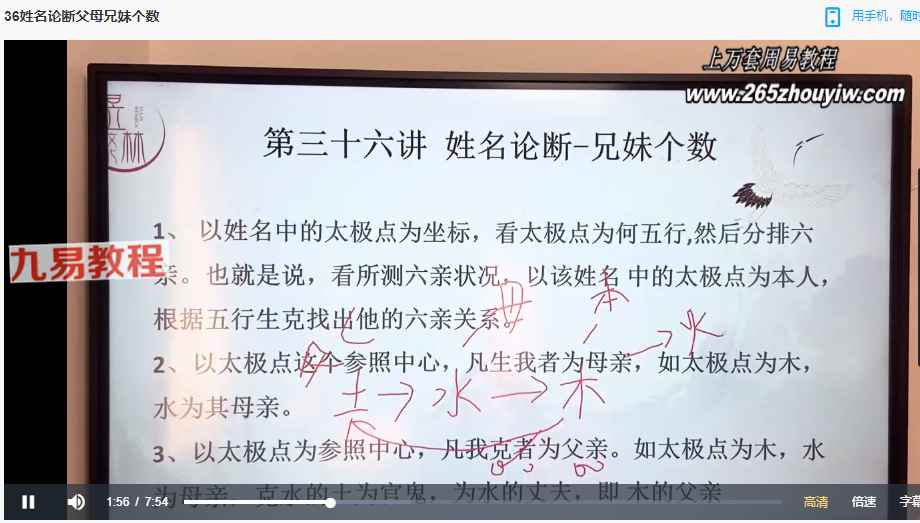 36姓名论断父母兄妹个数
用手机，随时
上万套周易教程
www.265zhouyiw.com
林
第三十六讲 姓名论断-兄妹个数
1、 以姓名中的太极点为坐标，看太极点为何五行,然后分排六
九易教程
亲。也就是说，看所测六亲状况，以该姓名 中的太极点为本人，
母 本
根据五行生克找出他的六亲关系。
水
2、以太极点这个参照中心，凡生我者为母亲，如太极点为木，
土 水 木
水为其母亲。
3、以太极点为参照中心，凡我克者为父亲。如太极点为木，水
为母亲，克水的土为官鬼，为水的丈夫，即 木的父亲
1:56 / 7:54
高清 倍速 字幕